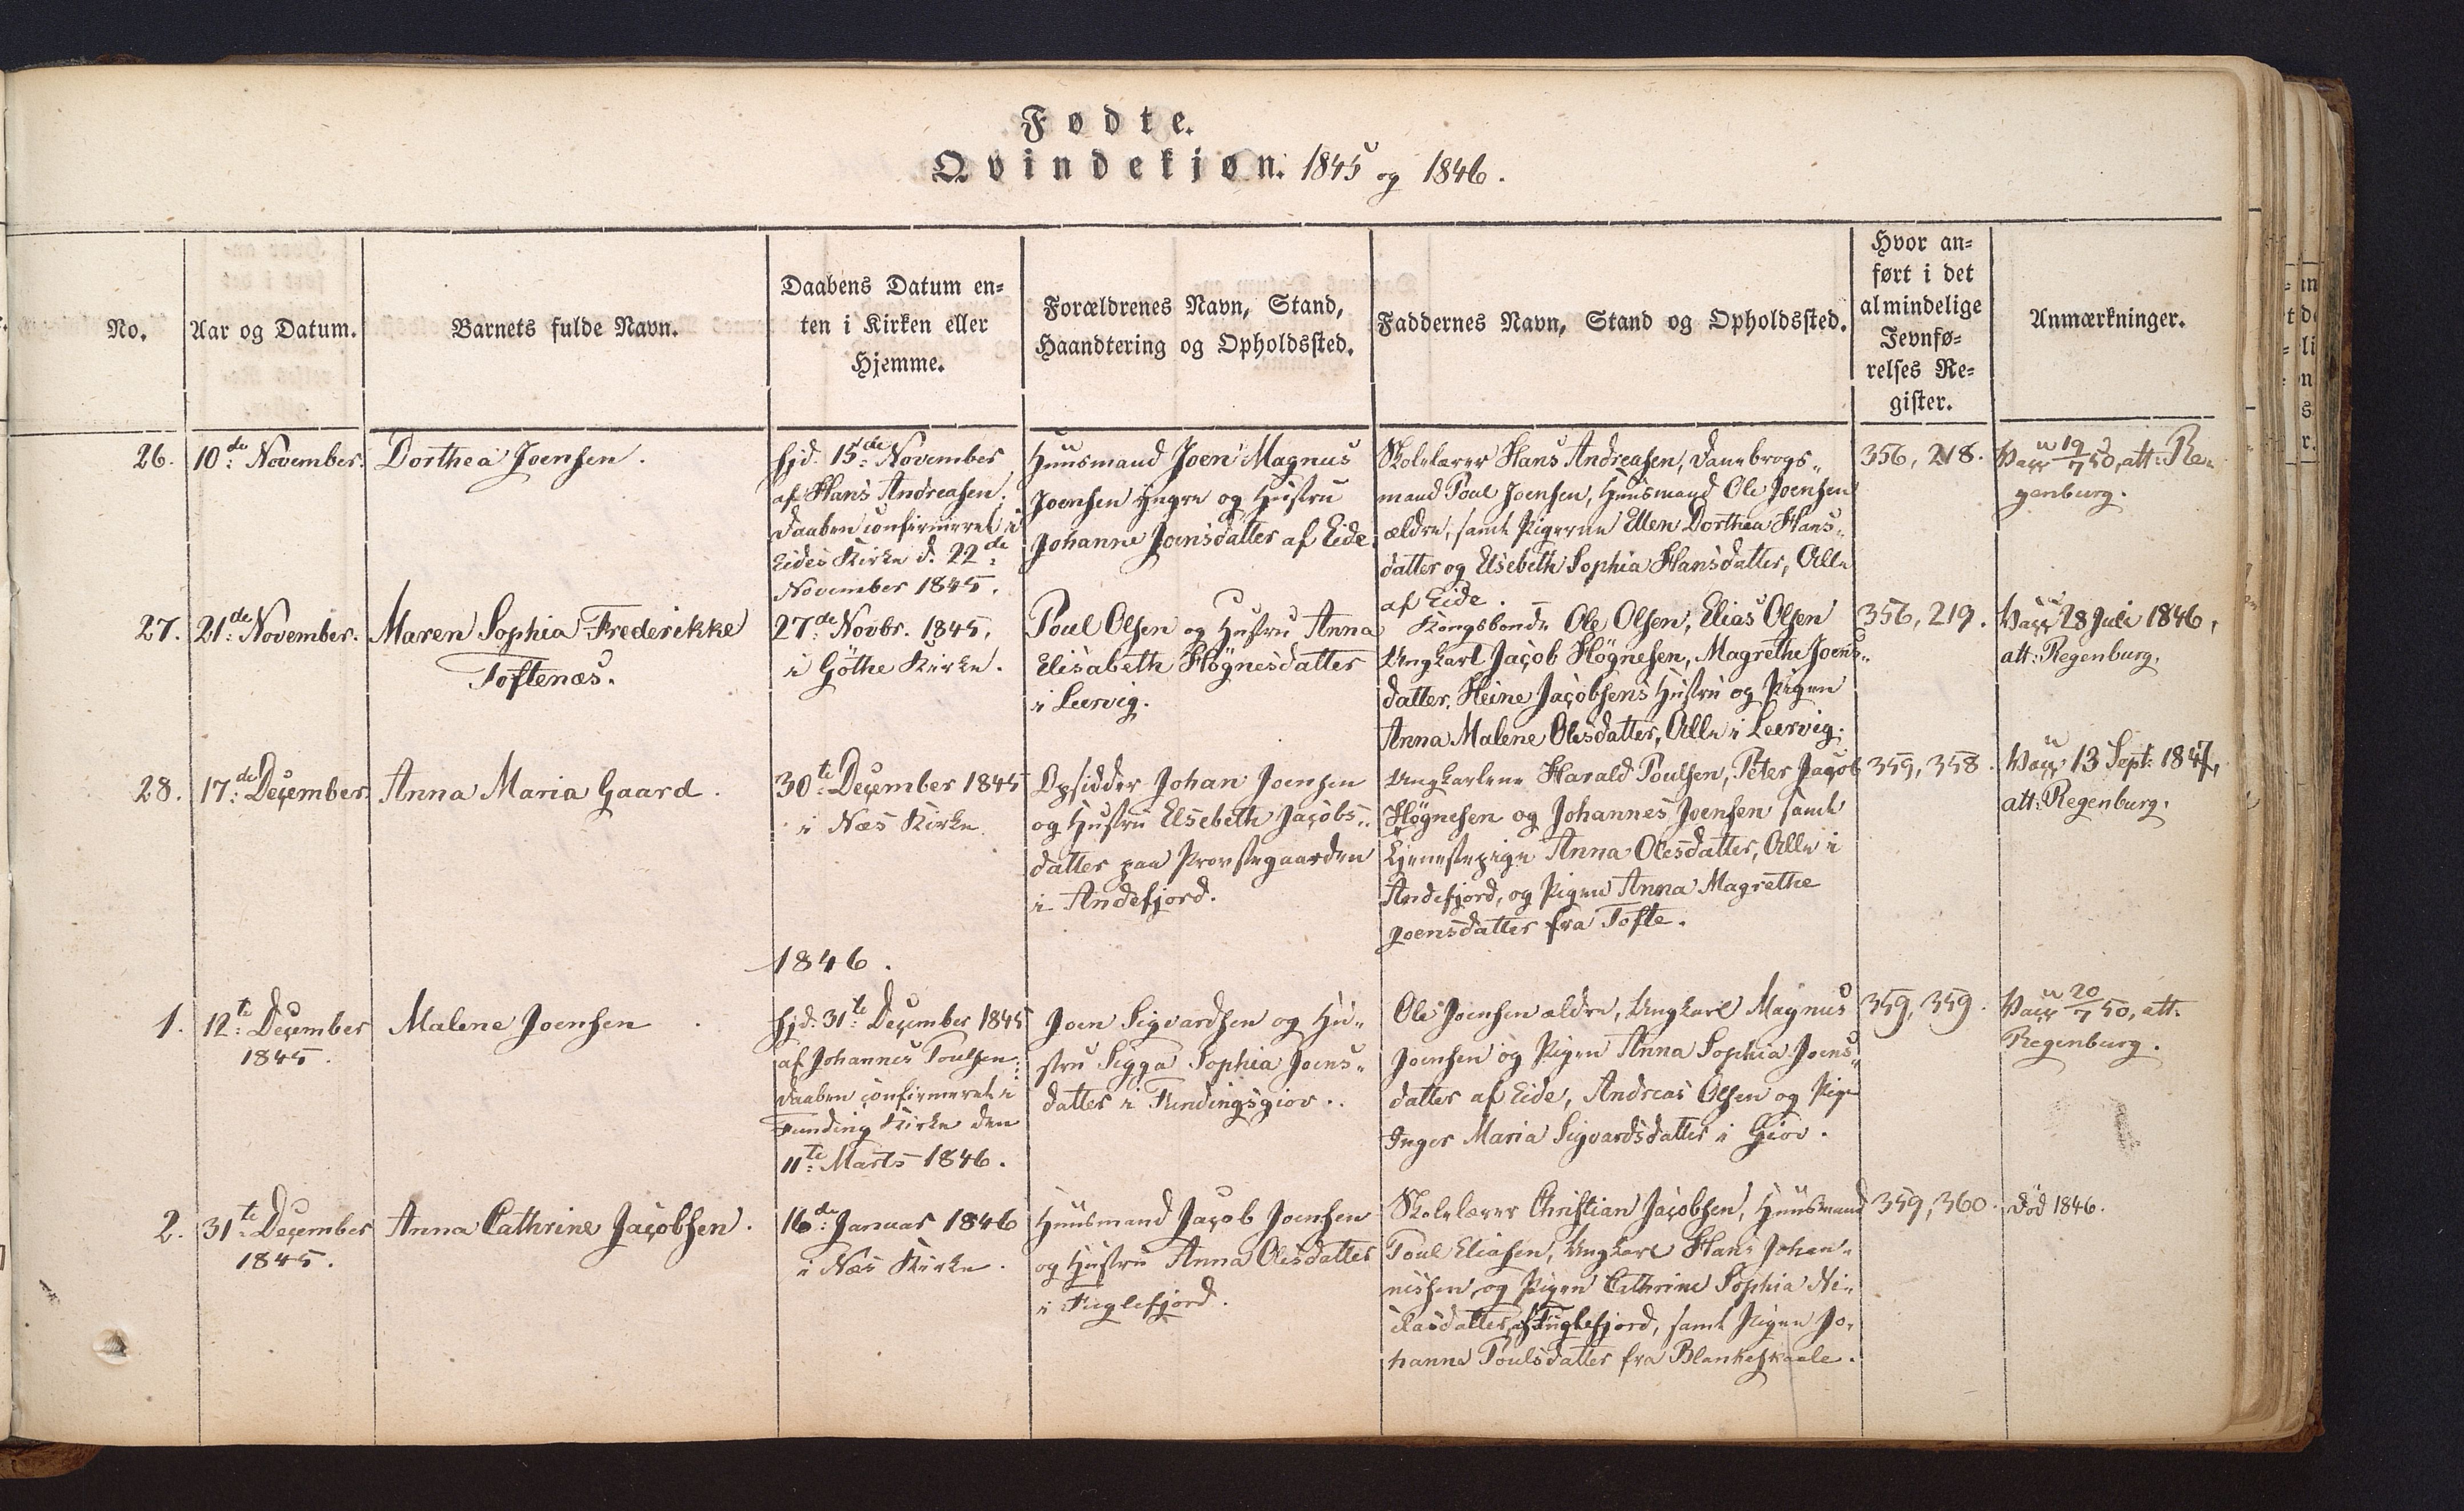 Fødte.
Qvindekjøn. 1845 og 1846.
No.
Aar og Datum.
Barnets fulde Navn.
Daabens Datum en=
ten i Kirken eller
Hjemme.
Forældrenes Navn, Stand,
Haandtering og Opholdssted.
Faddernes Navn, Stand og Opholdssted.
Hvor an=
ført i det
almindelige
Jevnfø=
relses Re=
gister.
Anmærkninger.
26.
10de November.
Dorthea Joensen.
hjd. 15de November
af Hans Andreasen.
Daaben confirmeret i
Eides Kirke d. 22de
November 1845.
Huusmand Joen Magnus
Joensen yngre og Hustru
Johanne Joensdatter af Eide.
Skolelærer Hans Andreasen, Danebrogs-
mand Poul Joensen, Huusmand Ole Joensen
ældre, samt Pigerne Ellen Dorthea Hans-
datter og Elsebeth Sophia Hansdatter, Alle
af Eide.
356, 218.
Vacc 19/7 50, att: Re-
genburg.
27.
21de November.
Maren Sophia Frederikke
Toftenæs.
27de Novbr. 1845,
i Göthe Kirke.
Poul Olsen og Hustru Anna
Elisabeth Högnesdatter
i Leervig.
Kongsbonde Ole Olsen, Elias Olsen
Ungkarl Jacob Högnesen, Magrethe Joens-
datter, Heine Jacobsens Hustru og Pigen
Anna Malene Olesdatter, Alle i Leervig.
356, 219.
Vacc 28 Juli 1846,
att: Regenburg.
28.
17de December
Anna Maria Gaard.
30te December 1845
i Næs Kirke.
Opsidder Johan Joensen
og Hustru Elsebeth Jacobs-
datter paa Provstegaarden
i Andefjord.
Ungkarlene Harald Poulsen, Peter Jacob
Högnesen og Johannes Joensen samt
Tjenestepige Anna Olesdatter, Alle i
Andefjord, og Pigen Anna Magrethe
Joensdatter fra Tofte.
359, 358.
Vacc 13 Sept: 1847,
att: Regenburg.
1846.
1.
12te December
1845.
Malene Joensen
hjd. 31te December 1845
af Johannes Poulsen:
Daaben confirmeret i
Funding Kirke den
11te Marts 1846.
Joen Sigvardsen og Hu-
stru Sigga Sophia Joens-
datter i Fundingsgiov.
Ole Joensen ældre, Ungkarl Magnus
Joensen og Pigen Anna Sophia Joens-
datter af Eide, Andreas Olsen og Pige
Inger Maria Sigvardsdatter i Giov.
359, 359.
Vacc 20/7 50, att.
Regenburg.
2.
31te December
1845.
Anna Cathrine Jacobsen.
16de Januar 1846
i Næs Kirke.
Huusmand Jacob Joensen
og Hustru Anna Olesdatter
i Fuglefjord.
Skolelærer Christian Jacobsen, Huusmand
Poul Eliasen, Ungkarl Hans Johan-
nissen og Pigen Cathrine Sophia Ni-
clasdatter, af Fuglefjord, samt Pigen Jo-
hanne Poulsdatter fra Blankeskaale.
359, 360.
Död 1846.